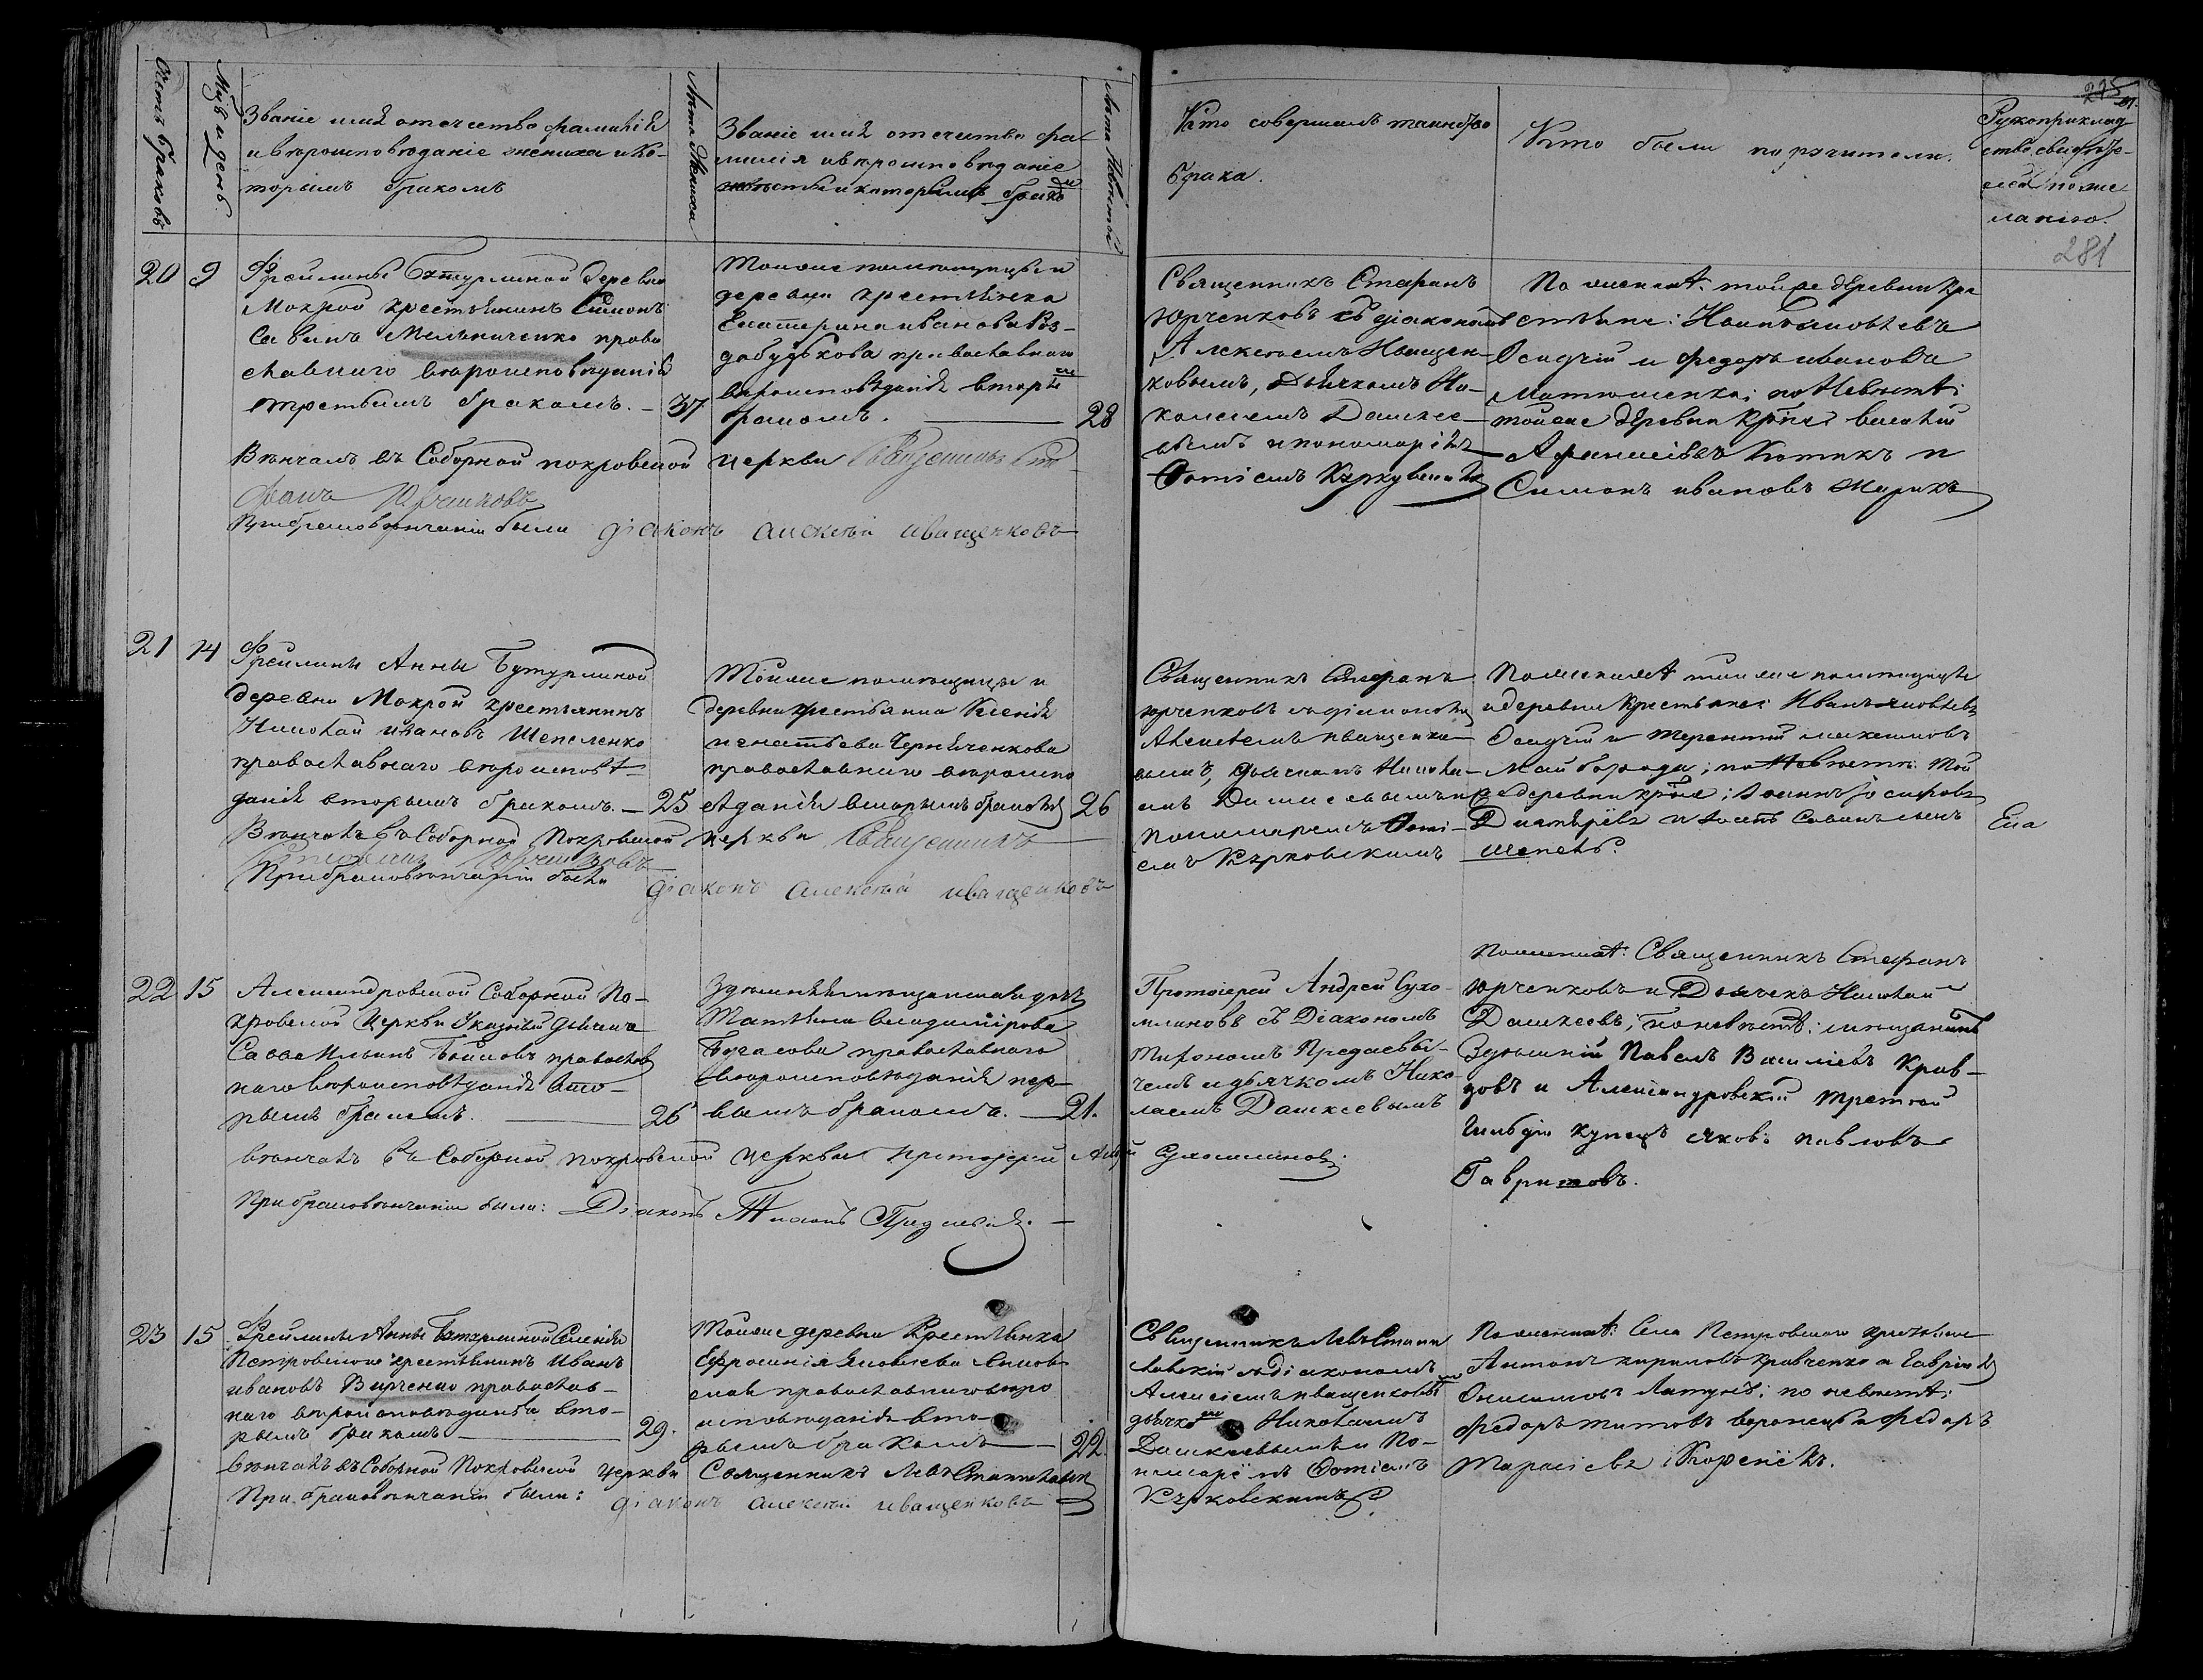 Счетъ браковъ
Мѣс. и день
Званіе имя отечество фамилія
и вѣроисповѣданіе жениха и ко-
торымъ бракомъ
Лѣта Жениха
Званіе имя отечество фа-
милія и вѣроисповѣданіе
невѣсты и которымъ бракомъ
Лѣта Невѣсты
Кто совершалъ таинство
брака.
Кто были поручители.
Рукоприклад-
ство свидѣте-
лей по же-
ланію.
281
20
9
Фрейлины Бутурлиной деревни
Мокрой крестьянинъ Симонъ
Савинъ Мельниченко право
славнаго вѣроисповѣданія
третьимъ бракомъ. —
37
Тойже помѣщицы и
деревни крестьянка
Екатерина иванова Роз-
добудькова православнаго
вѣроисповѣданія вторымъ
бракомъ.
28
Священникъ Стефанъ
Юрченковъ съ діакономъ
Алексѣемъ Иващен-
ковымъ, Дьячкомъ Ни-
колаемъ Дашкее-
вымъ и пономаремъ
Фотіемъ
По женихѣ: тойже деревни кре
стьяне: Иванъ яковлевъ
Осадчій и Федоръ ивановъ
Матюшенко; по Невѣстѣ:
тойже деревни крестьяне василій
Афанасіевъ Котикъ и
Симонъ ивановъ
Вѣнчалъ въ Соборной покровской церкви Священникъ Сте-
фанъ Юрченковъ
При браковѣнчаніи были діаконъ алексѣй иващенковъ
21
14
Фрейлины Анны Бутурлиной
деревни Мокрой крестьянинъ
Николай ивановъ Шепеленко
православнаго вѣроисповѣ-
данія вторымъ бракомъ. —
25
Тойже помѣщицы и
деревни крестьянка Ксенія
игнатьева Черниченкова
православнаго вѣроиспо
вѣданія вторымъ бракомъ
26
Священникъ Стефанъ
юрченковъ съ діакономъ
Алексѣемъ иващенко-
вымъ, дьячкомъ Никола-
емъ Дашкеевымъ и
пономаремъ Фоті-
емъ Кърковскимъ
По женихѣ тойже помѣщицы
и деревни крестьяне: Иванъ яковлевъ
Осадчій и терентій максимовъ
Майборода; по Невѣстѣ: той
же деревни крестьяне;
савинъ
Вѣнчалъ въ Соборной Покровской церкви Священникъ
Стефанъ Юрченковъ
При браковѣнчаніи были діаконъ алексѣй иващенковъ
22
15
Александровской Соборной По-
кровской Церкви Указный дьячекъ
Савва Ильинъ православ
наго вѣроисповѣданія вто-
рымъ бракомъ.
26
Здѣшняя мѣщанская дочь
Татіяна владимірова
православнаго
вѣроисповѣданія пер-
вымъ бракомъ. —
21.
Протоіерей Андрей Сухо-
млиновъ съ Діакономъ
Тихономъ Предаеви-
чемъ и дьячкомъ Нико-
лаемъ Дашкеевымъ
По женихѣ: Священникъ Стефанъ
Юрченковъ и Дьячекъ Николай
Дашкеевъ; по невѣстѣ: мѣщанинъ
Здѣшній Павелъ Василіевъ Крав-
цовъ и Александровскій третьей
гильдіи купецъ яковъ павловъ
Гавриловъ.
вѣнчалъ въ Соборной покровской церкви протоіерей Андрей Сухомлиновъ
При браковѣнчаніи были: Діаконъ Тихонъ
23
15
Фрейлины Анны Бутурлиной Селенія
Петровскаго крестьянинъ Иванъ
ивановъ Вирченко православ-
наго вѣроисповѣданія вто-
рымъ бракомъ
29.
Тойже деревни Крестьянка
Ефросинія Яковлева
православнаго вѣро
исповѣданія вто-
рымъ бракомъ
22
Священникъ Левъ Стани
славскій съ Діакономъ
Алексіемъ иващенковымъ
дьячкомъ Николаемъ
Дашкеевымъ и По-
номаремъ Фотіемъ
Кърковскимъ
По женихѣ: Села Петровскаго крестьяне
Антонъ кириловъ кравченко и Гавріилъ
Онисимовъ; по невѣстѣ:
Федоръ титовъ и Федоръ
Тарасіевъ
вѣнчалъ въ Соборной Покровской церкви Священникъ Левъ Станиславскій
При браковѣнчаніи были: діаконъ алексѣй иващенковъ